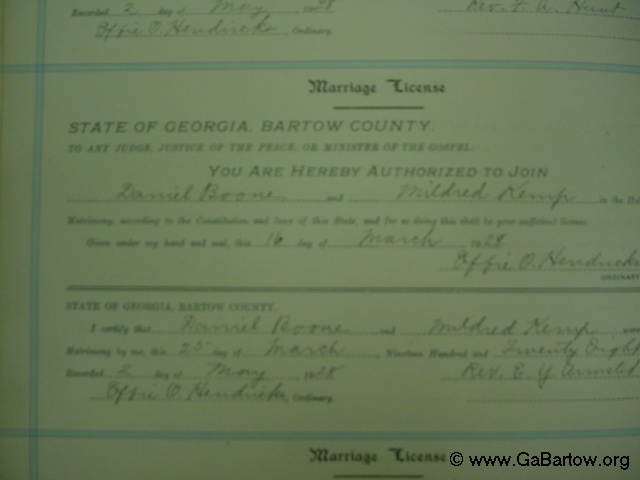 Recorded 2 day of May 1928 Rev. F. A. Hunt
Offie O. Hendricks, Ordinary.
Marriage License
STATE OF GEORGIA, BARTOW COUNTY.
TO ANY JUDGE, JUSTICE OF THE PEACE, OR MINISTER OF THE GOSPEL:
YOU ARE HEREBY AUTHORIZED TO JOIN
Daniel Boone and Mildred Kemp in the
Matrimony, according to the Constitution and laws of this State, and for so doing this shall be your sufficient license.
Given under my hand and seal, this 16 day of March 1928
Offie O. Hendricks
ORDINARY
STATE OF GEORGIA, BARTOW COUNTY.
I certify that Daniel Boone and Mildred Kemp were
Matrimony by me, this 25 day of March, Nineteen Hundred and Twenty Eight
Recorded 2 day of May 1928 Rev. E. Y.
Offie O. Hendricks, Ordinary.
Marriage License
© www.GaBartow.org